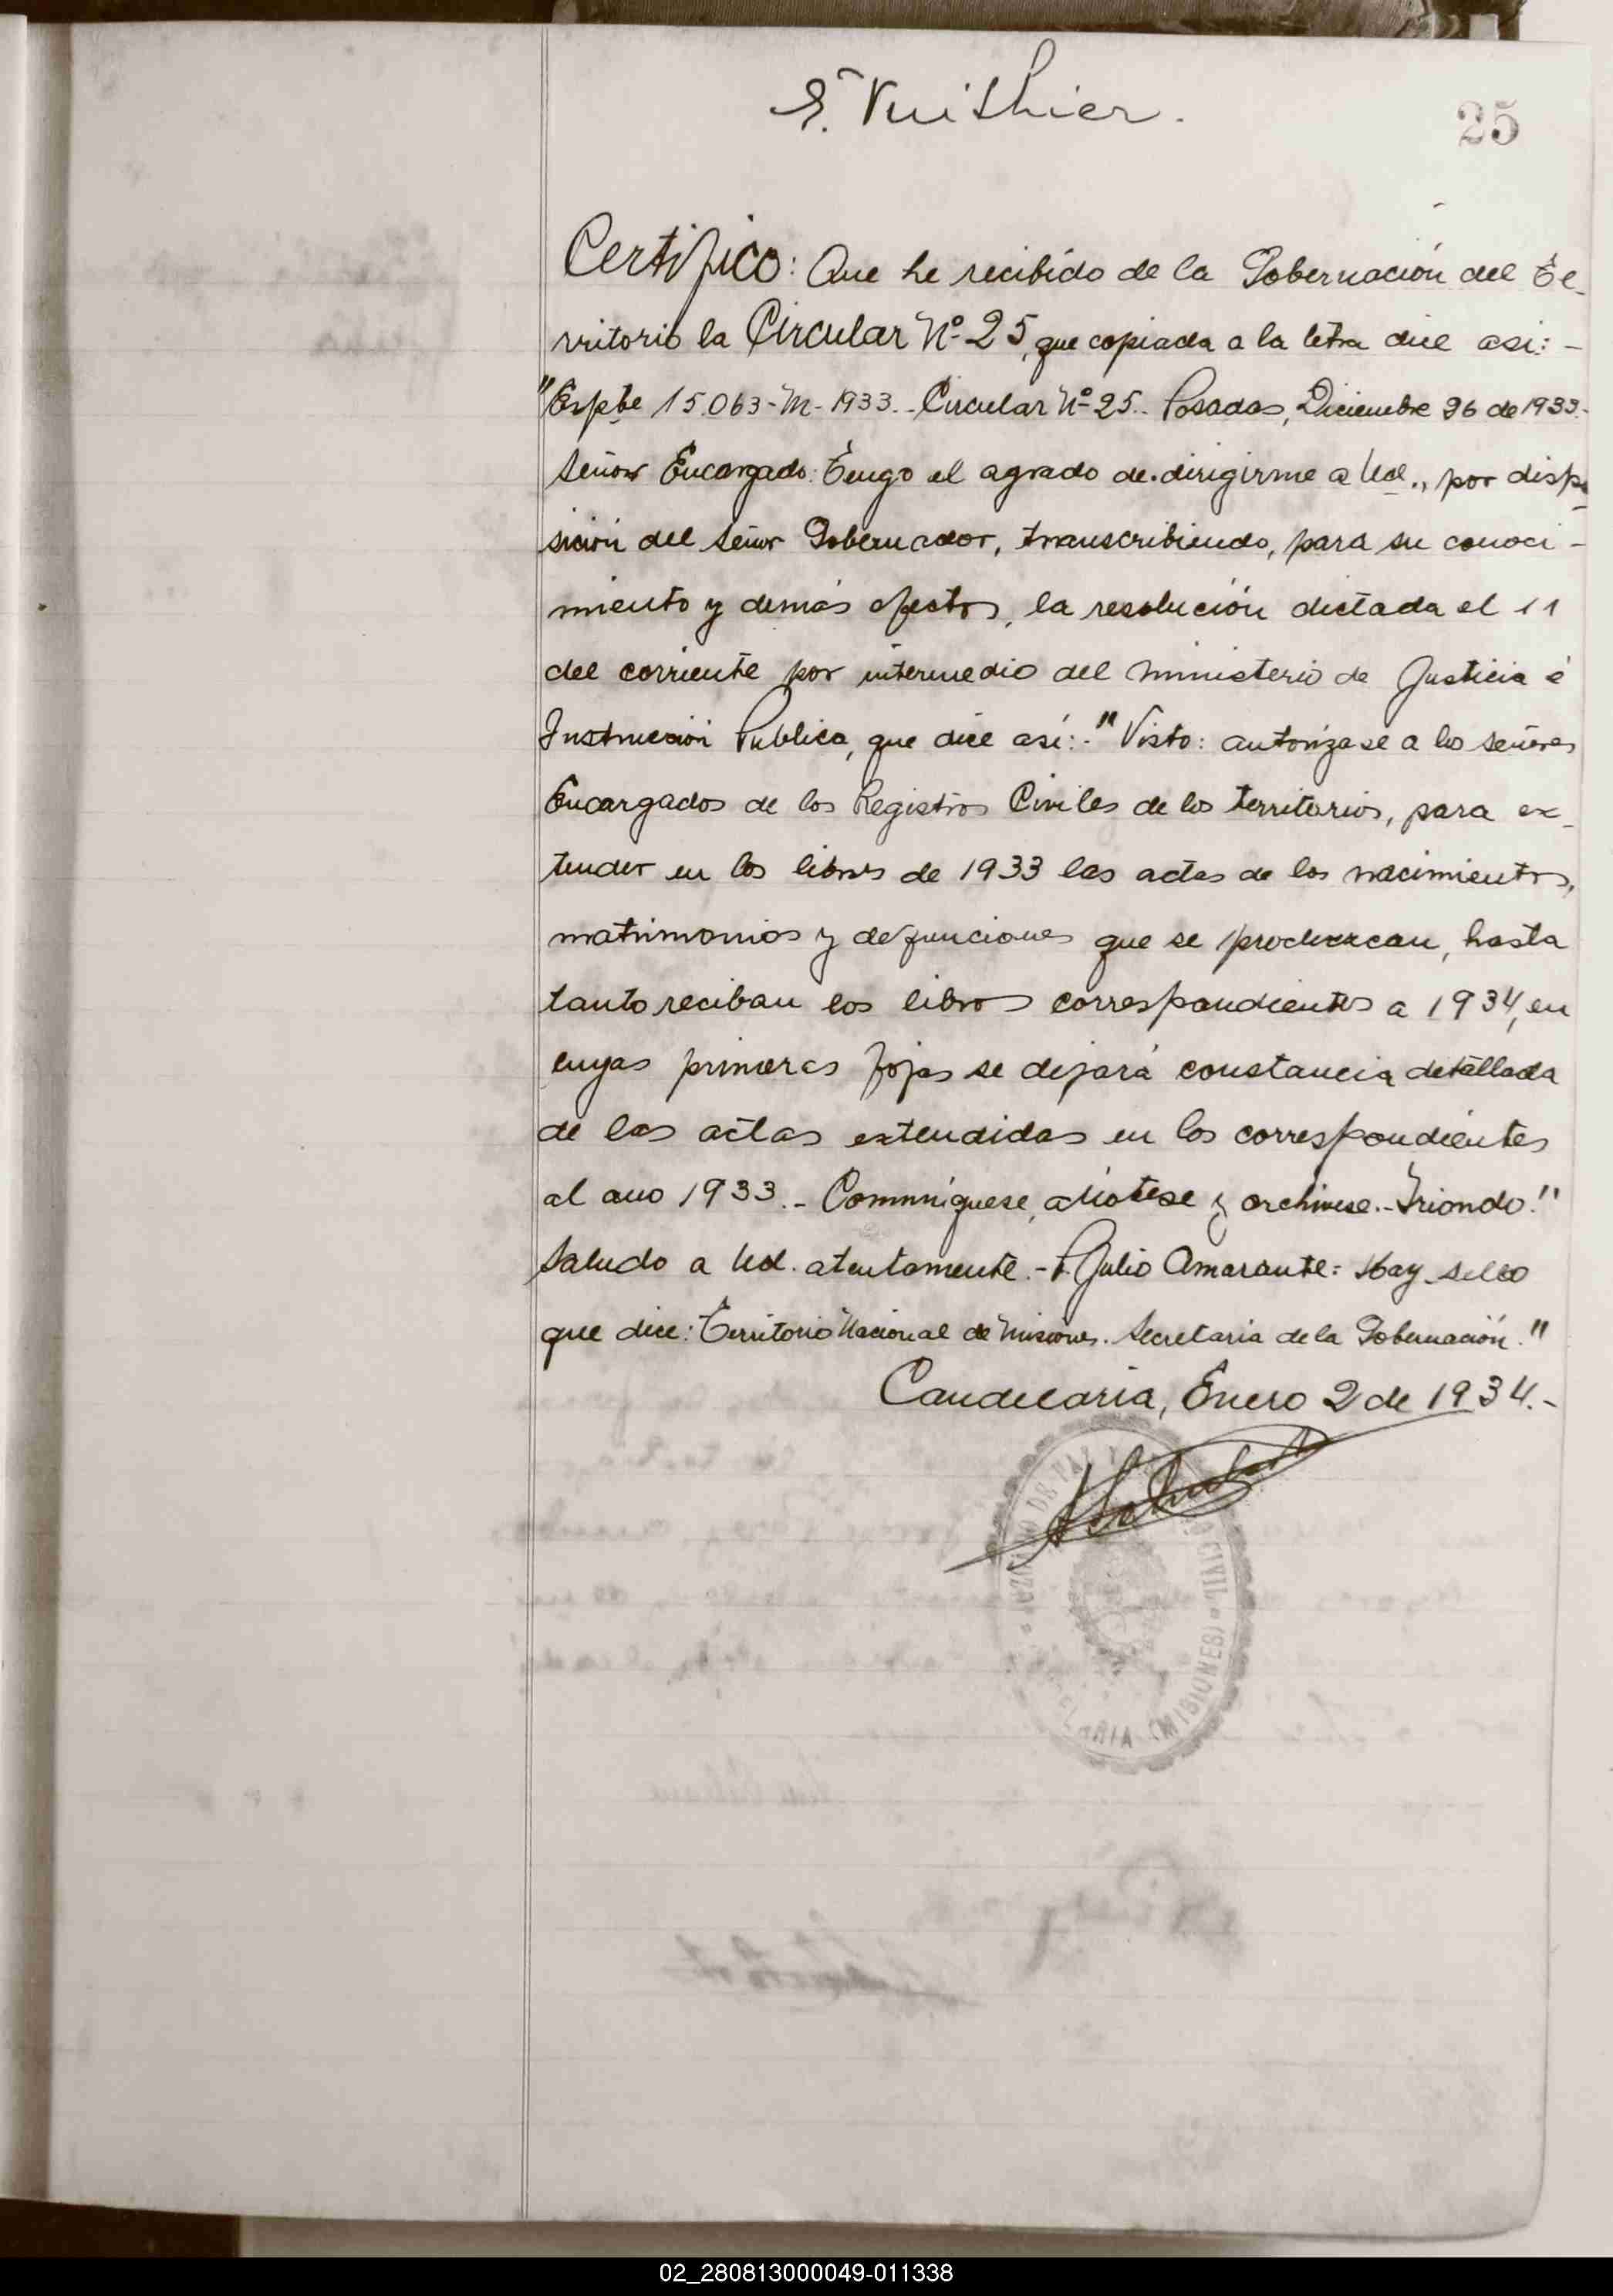 E. Vuithier.
25
Certifico: Que he recibido de la Gobernación del Te-
rritorio la Circular Nº 25, que copiada a la letra dice asi: -
"Expte 15.063-M-1933.- Circular Nº 25.- Posadas, Diciembre 26 de 1933.-
Señor Encargado: Tengo el agrado de dirigirme a Ud., por dispo-
sición del señor Gobernador, transcribiendo, para su conoci-
miento y demás efectos, la resolución dictada el 11
del corriente por intermedio del Ministerio de Justicia é
Instrucción Publica, que dice así:- "Visto: autorízase a los señores
Encargados de los Registros Civiles de los territorios, para ex-
tender en los libros de 1933 las actas de los nacimientos,
matrimonios y defunciones que se produzcan, hasta
tanto reciban los libros correspondientes a 1934, en
cuyas primeras fojas se dejará constancia detallada
de las actas extendidas en los correspondientes
al ano 1933.- Comuníquese, anótese y archivese.- Iriondo."
Saludo a Ud. atentamente.- Julio Amarante: Hay sello
que dice: Territorio Nacional de Misiones. Secretaria de la Gobernación."
Candelaria, Enero 2 de 1934.-
JUZGADO DE PAZ Y CIVIL
(MISIONES)
02_280813000049-011338